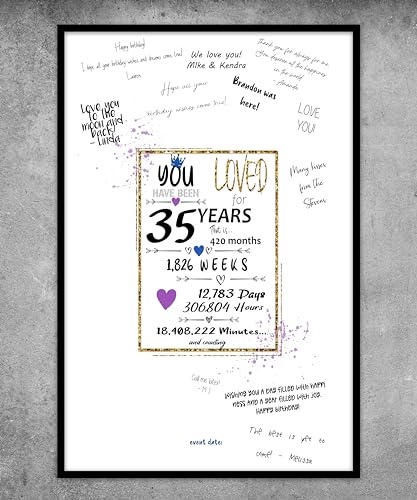 Happy birthday!
I hope all your birthday wishes and dreams come true!
Lauren
We love you!
Mike & Kendra
Thank you for always for me
You deserve all the happiness
in the world
- Amanda
Hope all your
birthday wishes come true!
Brandon was
here!
LOVE
YOU!
Love you
to the
moon and
back!
- Linda
Many kisses
from the
Stevens
YOU
HAVE BEEN
LOVED
for
35 YEARS
That is...
420 months
1,826 WEEKS
12,783 Days
306,804 Hours
18,408,222 Minutes...
and counting
Call me later!
- M J
Wishing you a day filled with happi
ness and a year filled with joy.
Happy birthday!
The best is yet to
come! - Melissa
event date: